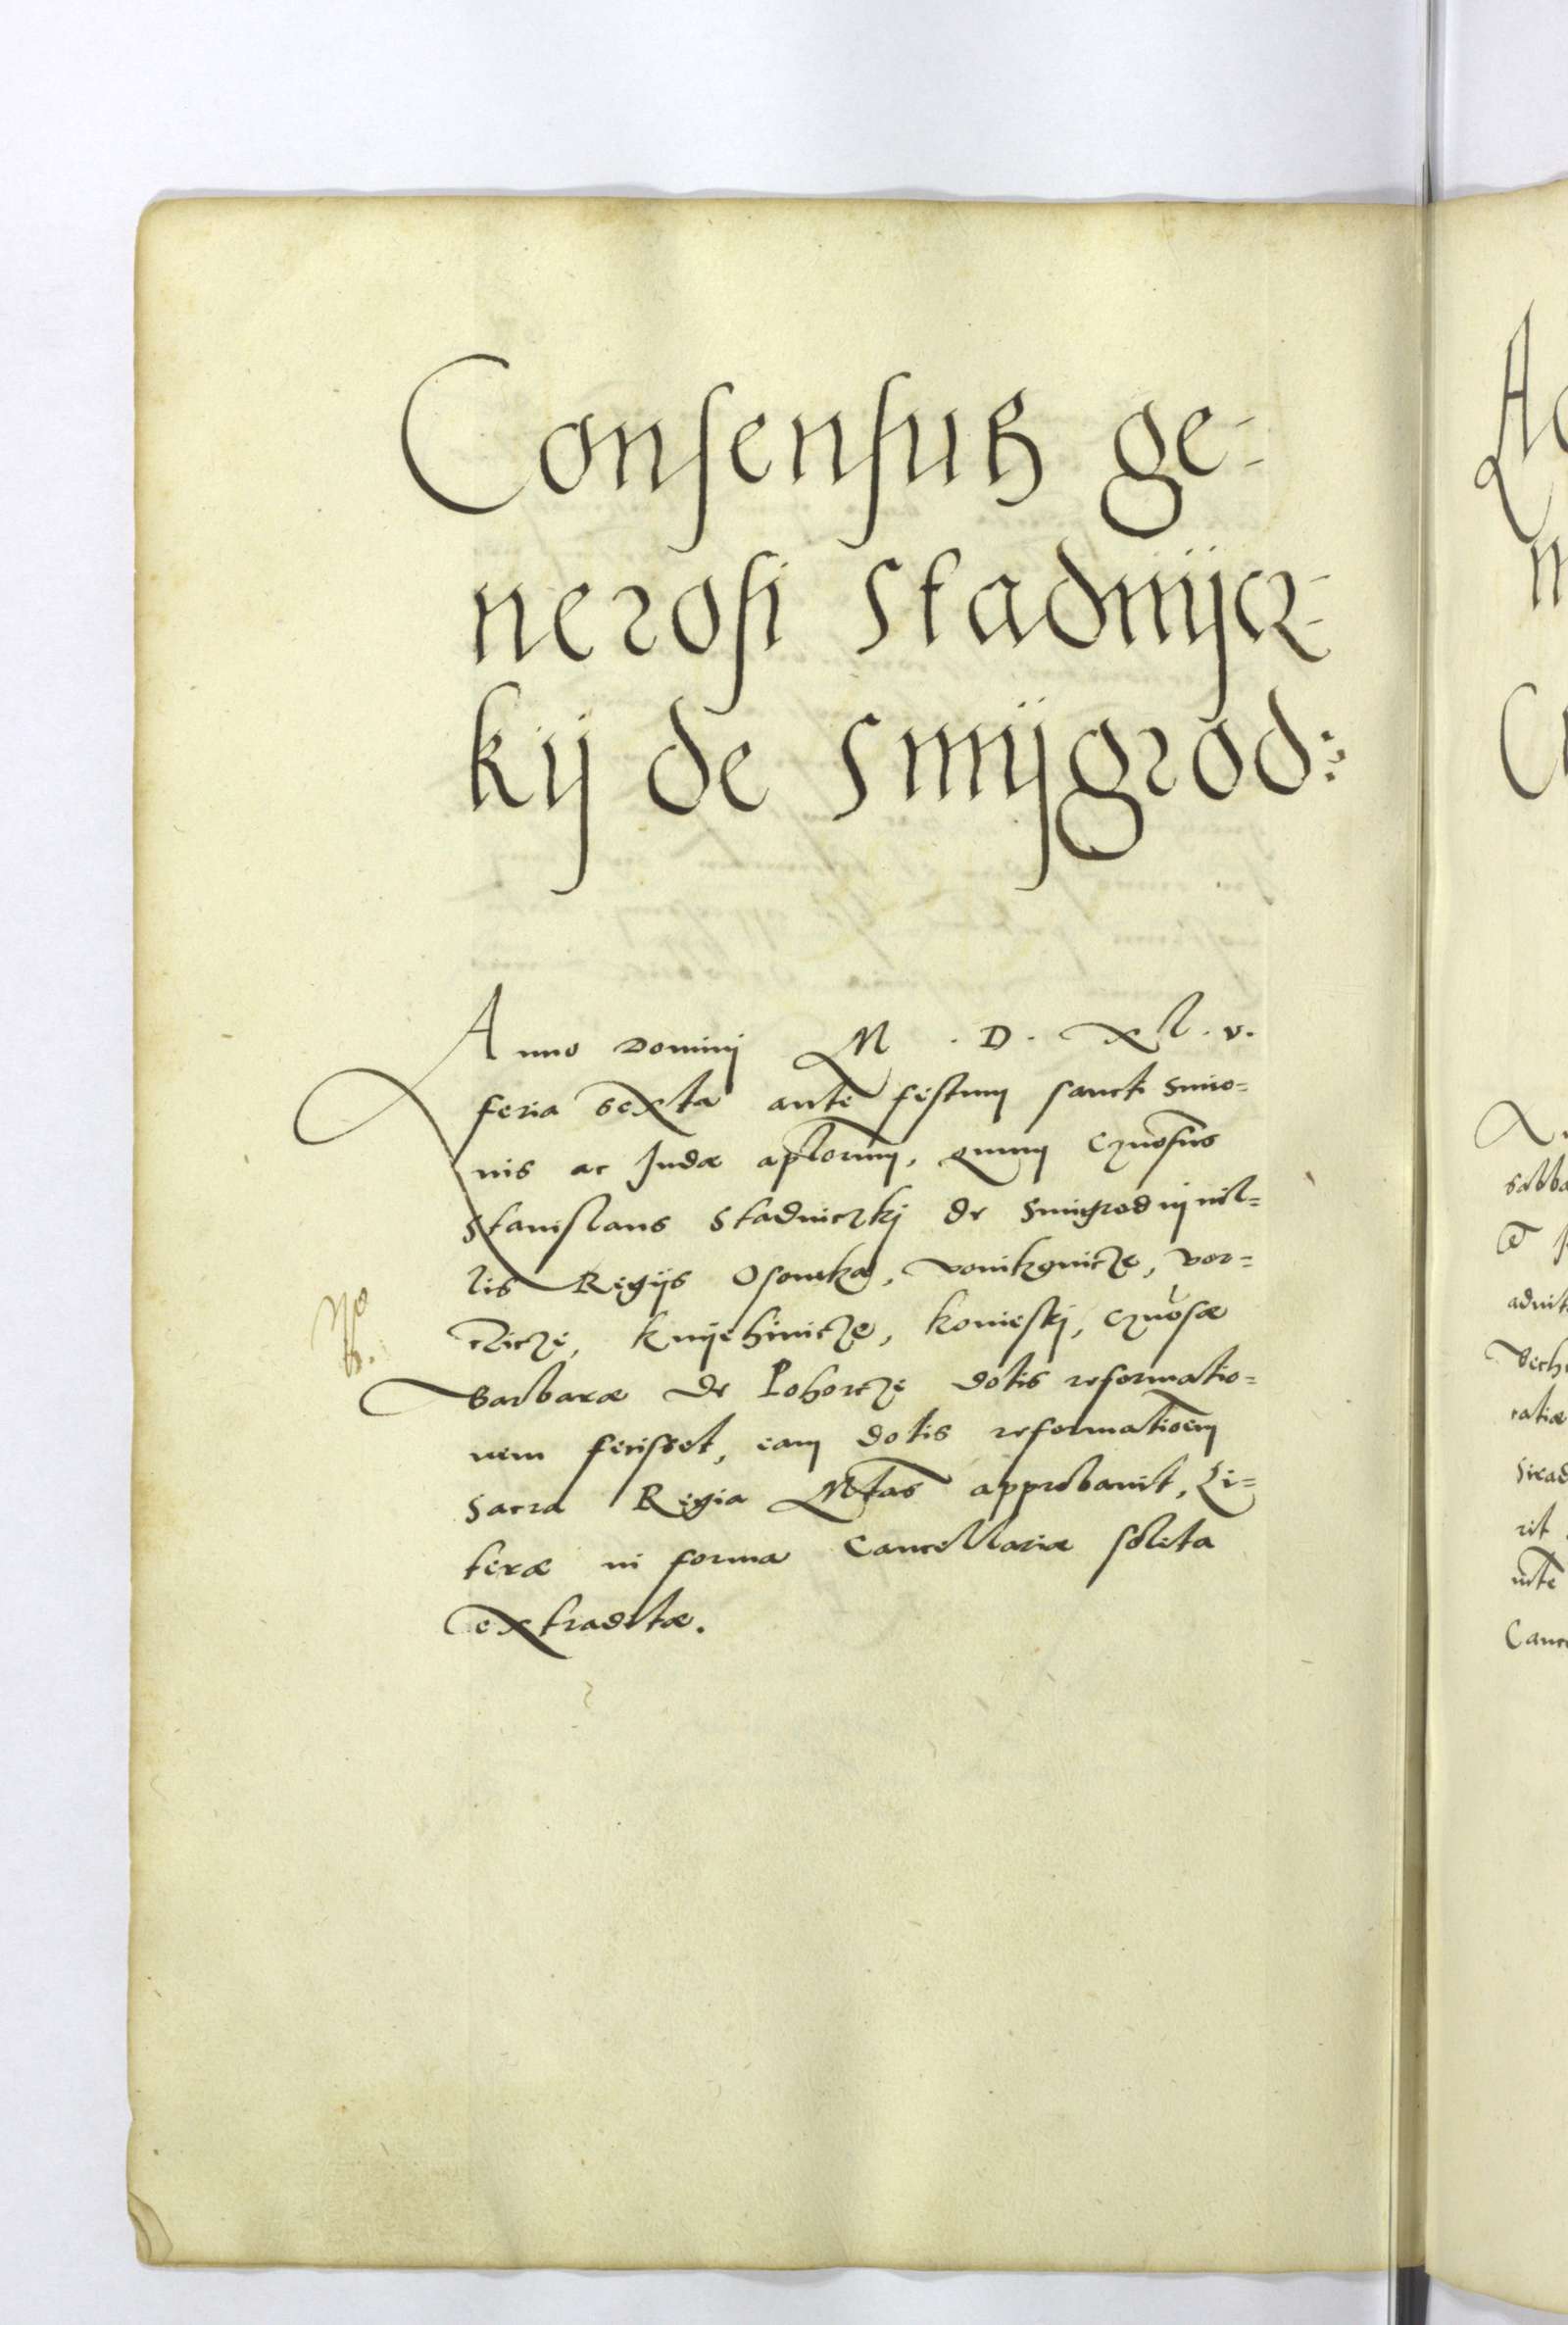 Consensus ge-
nerosi Stadnijcz-
kij de Smijgrod:
Anno Dominij M . D . Xl . v.
feria sexta ante festum sancti Simo=
nis ac Judæ apl̄orum, quum Gn̄osus
Stanislaus Stadniczkj de Smigrod in vil=
lis Regijs Osomka, Vonikgnicze, Vor=
Knijehinicze, Konieskj, Gn̄osæ
Barbaræ de Pohorcze dotis reformatio=
nem fecisset, eam dotis reformatioēm
Sacra Regia Mtas approbavit, Li=
teræ in forma Cancellariæ solita
extraditæ.